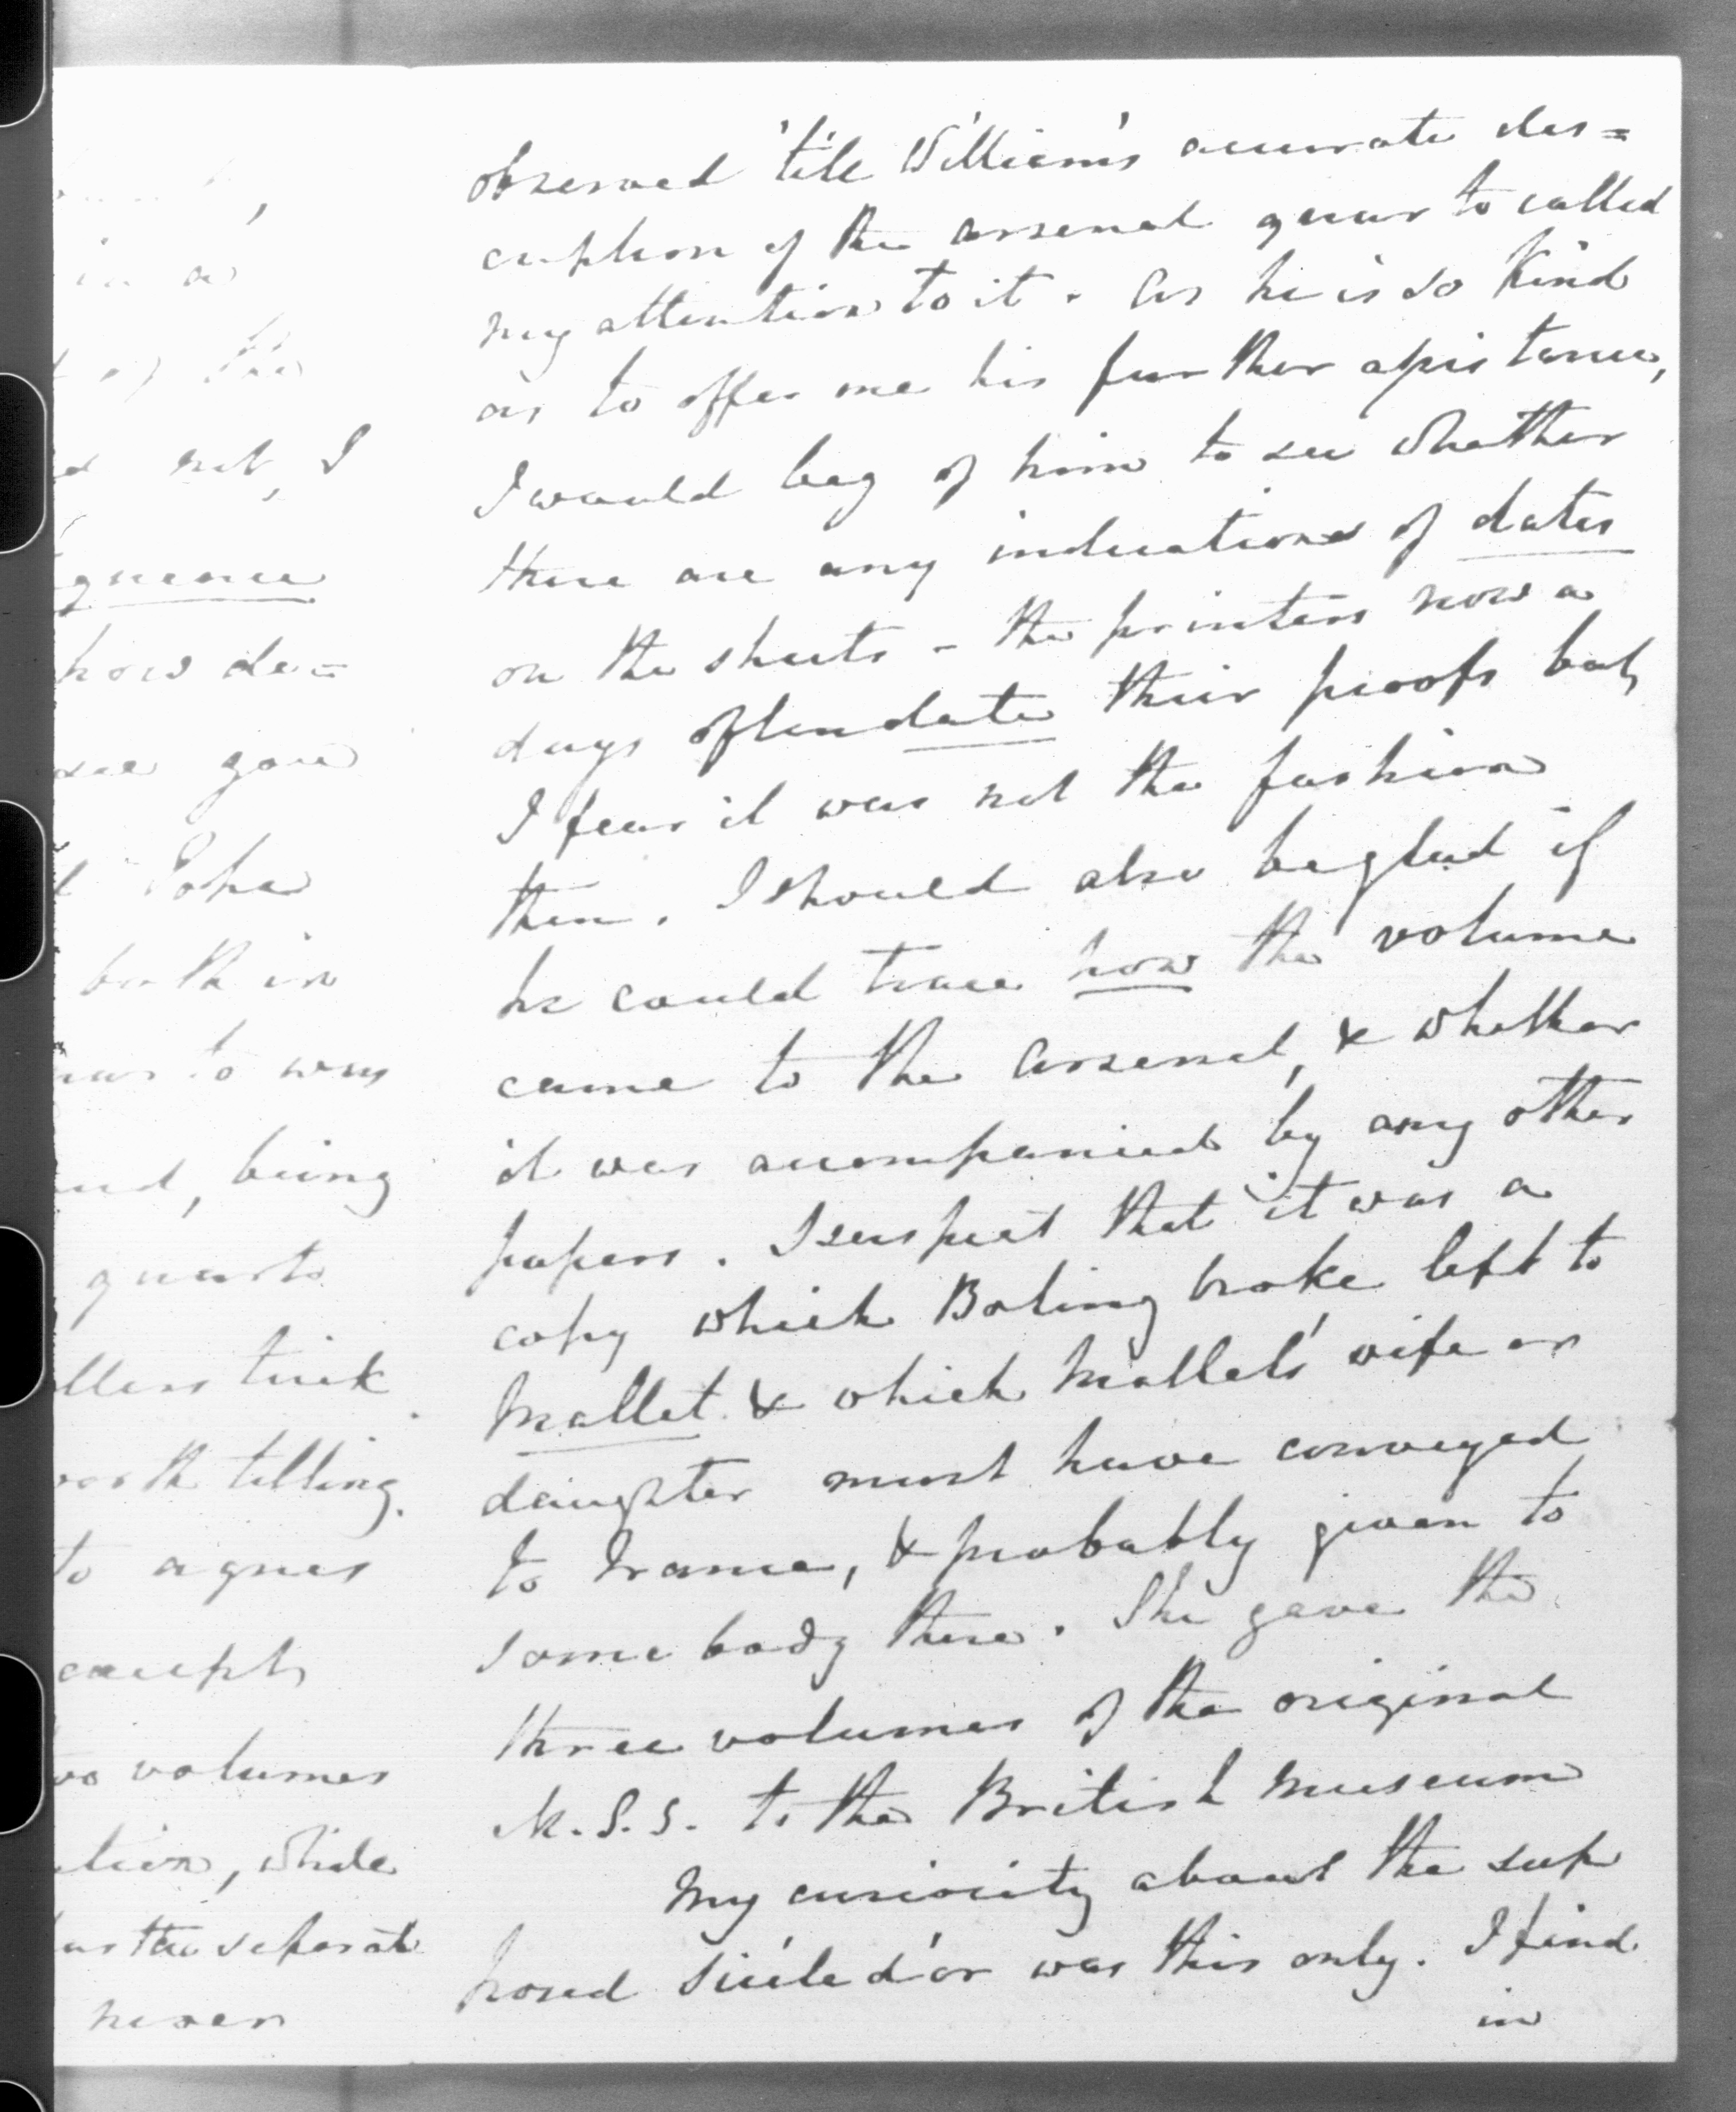 in a
the
not, I
quence
how de=
see you
Pope
both in
to was
, being
quarto
trick
worth telling.
to agnes
except
two volumes
, while
as the separate
never
observed 'till William's accurate des=
cription of the arsenal quarto called
my attention to it. As he is so kind
as to offer me his further assistance,
I would beg of him to see whether
there are any indications of dates
on the sheets - the printers now a
days often date their proofs but
I fear it was not the fashion
then. I should also be glad if
he could trace how the volume
came to the Arsenal, & whether
it was accompanied by any other
papers. I suspect that it was a
copy which Bolingbroke left to
Mallet & which Mallet's wife or
daughter must have conveyed
to France, & probably given to
some body there. She gave the
three volumes of the original
M.S.S. to the British Museum
My curiosity about the sup
posed Siécle d'or was this only. I find
in